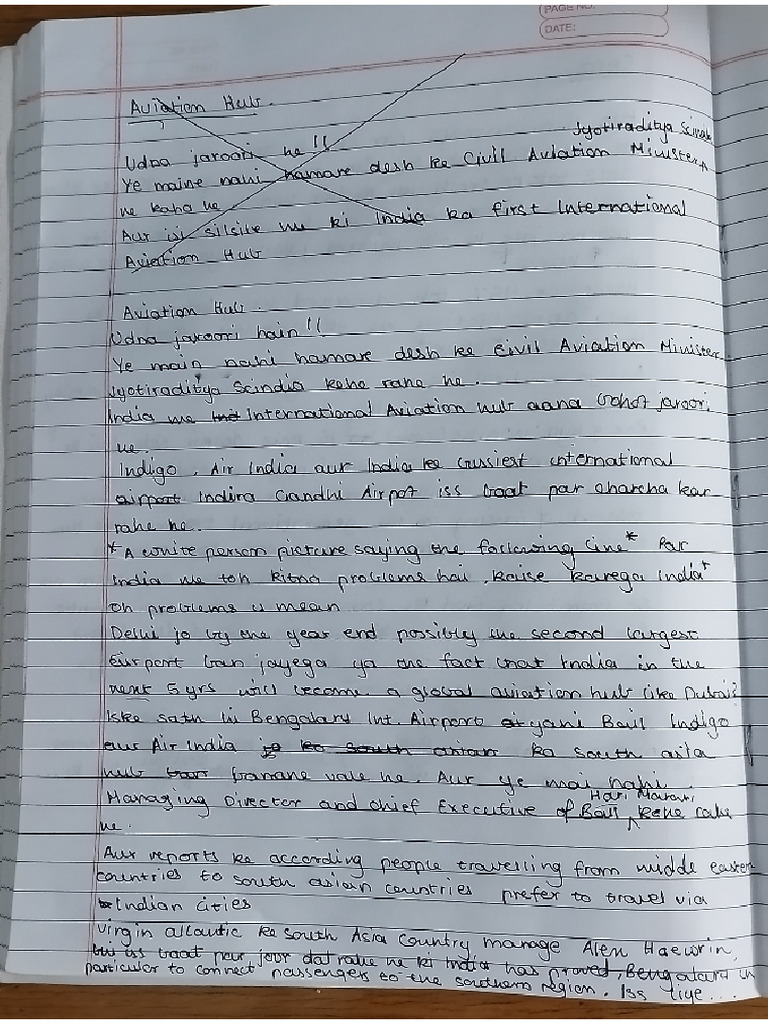 PAGE NO.
DATE:
Aviation Hub.
Udna jaroori he !!
Jyotiraditya Scindia
Ye maine nahi hamare desh ke Civil Aviation Minister
ne kaha he
Aur isi silsile me ki India ka first International
Aviation Hub
Aviation Hub.
Udna jaroori hain !!
Ye main nahi hamare desh ke civil Aviation Minister
Jyotiraditya Scindia kehe rahe he.
India me Int International Aviation hub aana bohot jaroori
he.
Indigo, Air India aur India ke busiest international
airport Indira Gandhi Airpot iss baat par charcha kar
rahe he.
*A white person picture saying the following line* Par
India me toh kitna problems hai, kaise karega India*
oh problems u mean
Delhi jo by the year end possibly the second largest
airport ban jayega ya the fact that India in the
next 5 yrs will become a global aviation hub like Dubai?
Iske sath hi Bengalary Int. Airport yani Bail Indigo
aur Air India jo ko south asian ka south asia
hub banane vale he. Aur ye mai nahi.
Hari Marar
Managing Director and chief Executive of Bail kehe rahe
he.
Aur reports ke according people travelling from midde eastern
countries to south asian countries prefer to travel via
Indian cities
Virgin atlantic ke south Asia country manage Alen
is baat par joor dat rahe he ki India has proved, Bengalaru in
particular to connect passengers to the southern region. Iss liye...